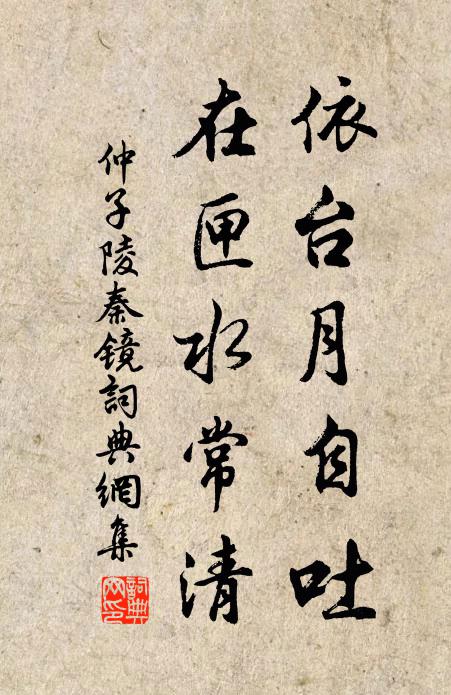 依台月自吐
在匣水常清
仲子陵秦镜詞典網集
詞典网印